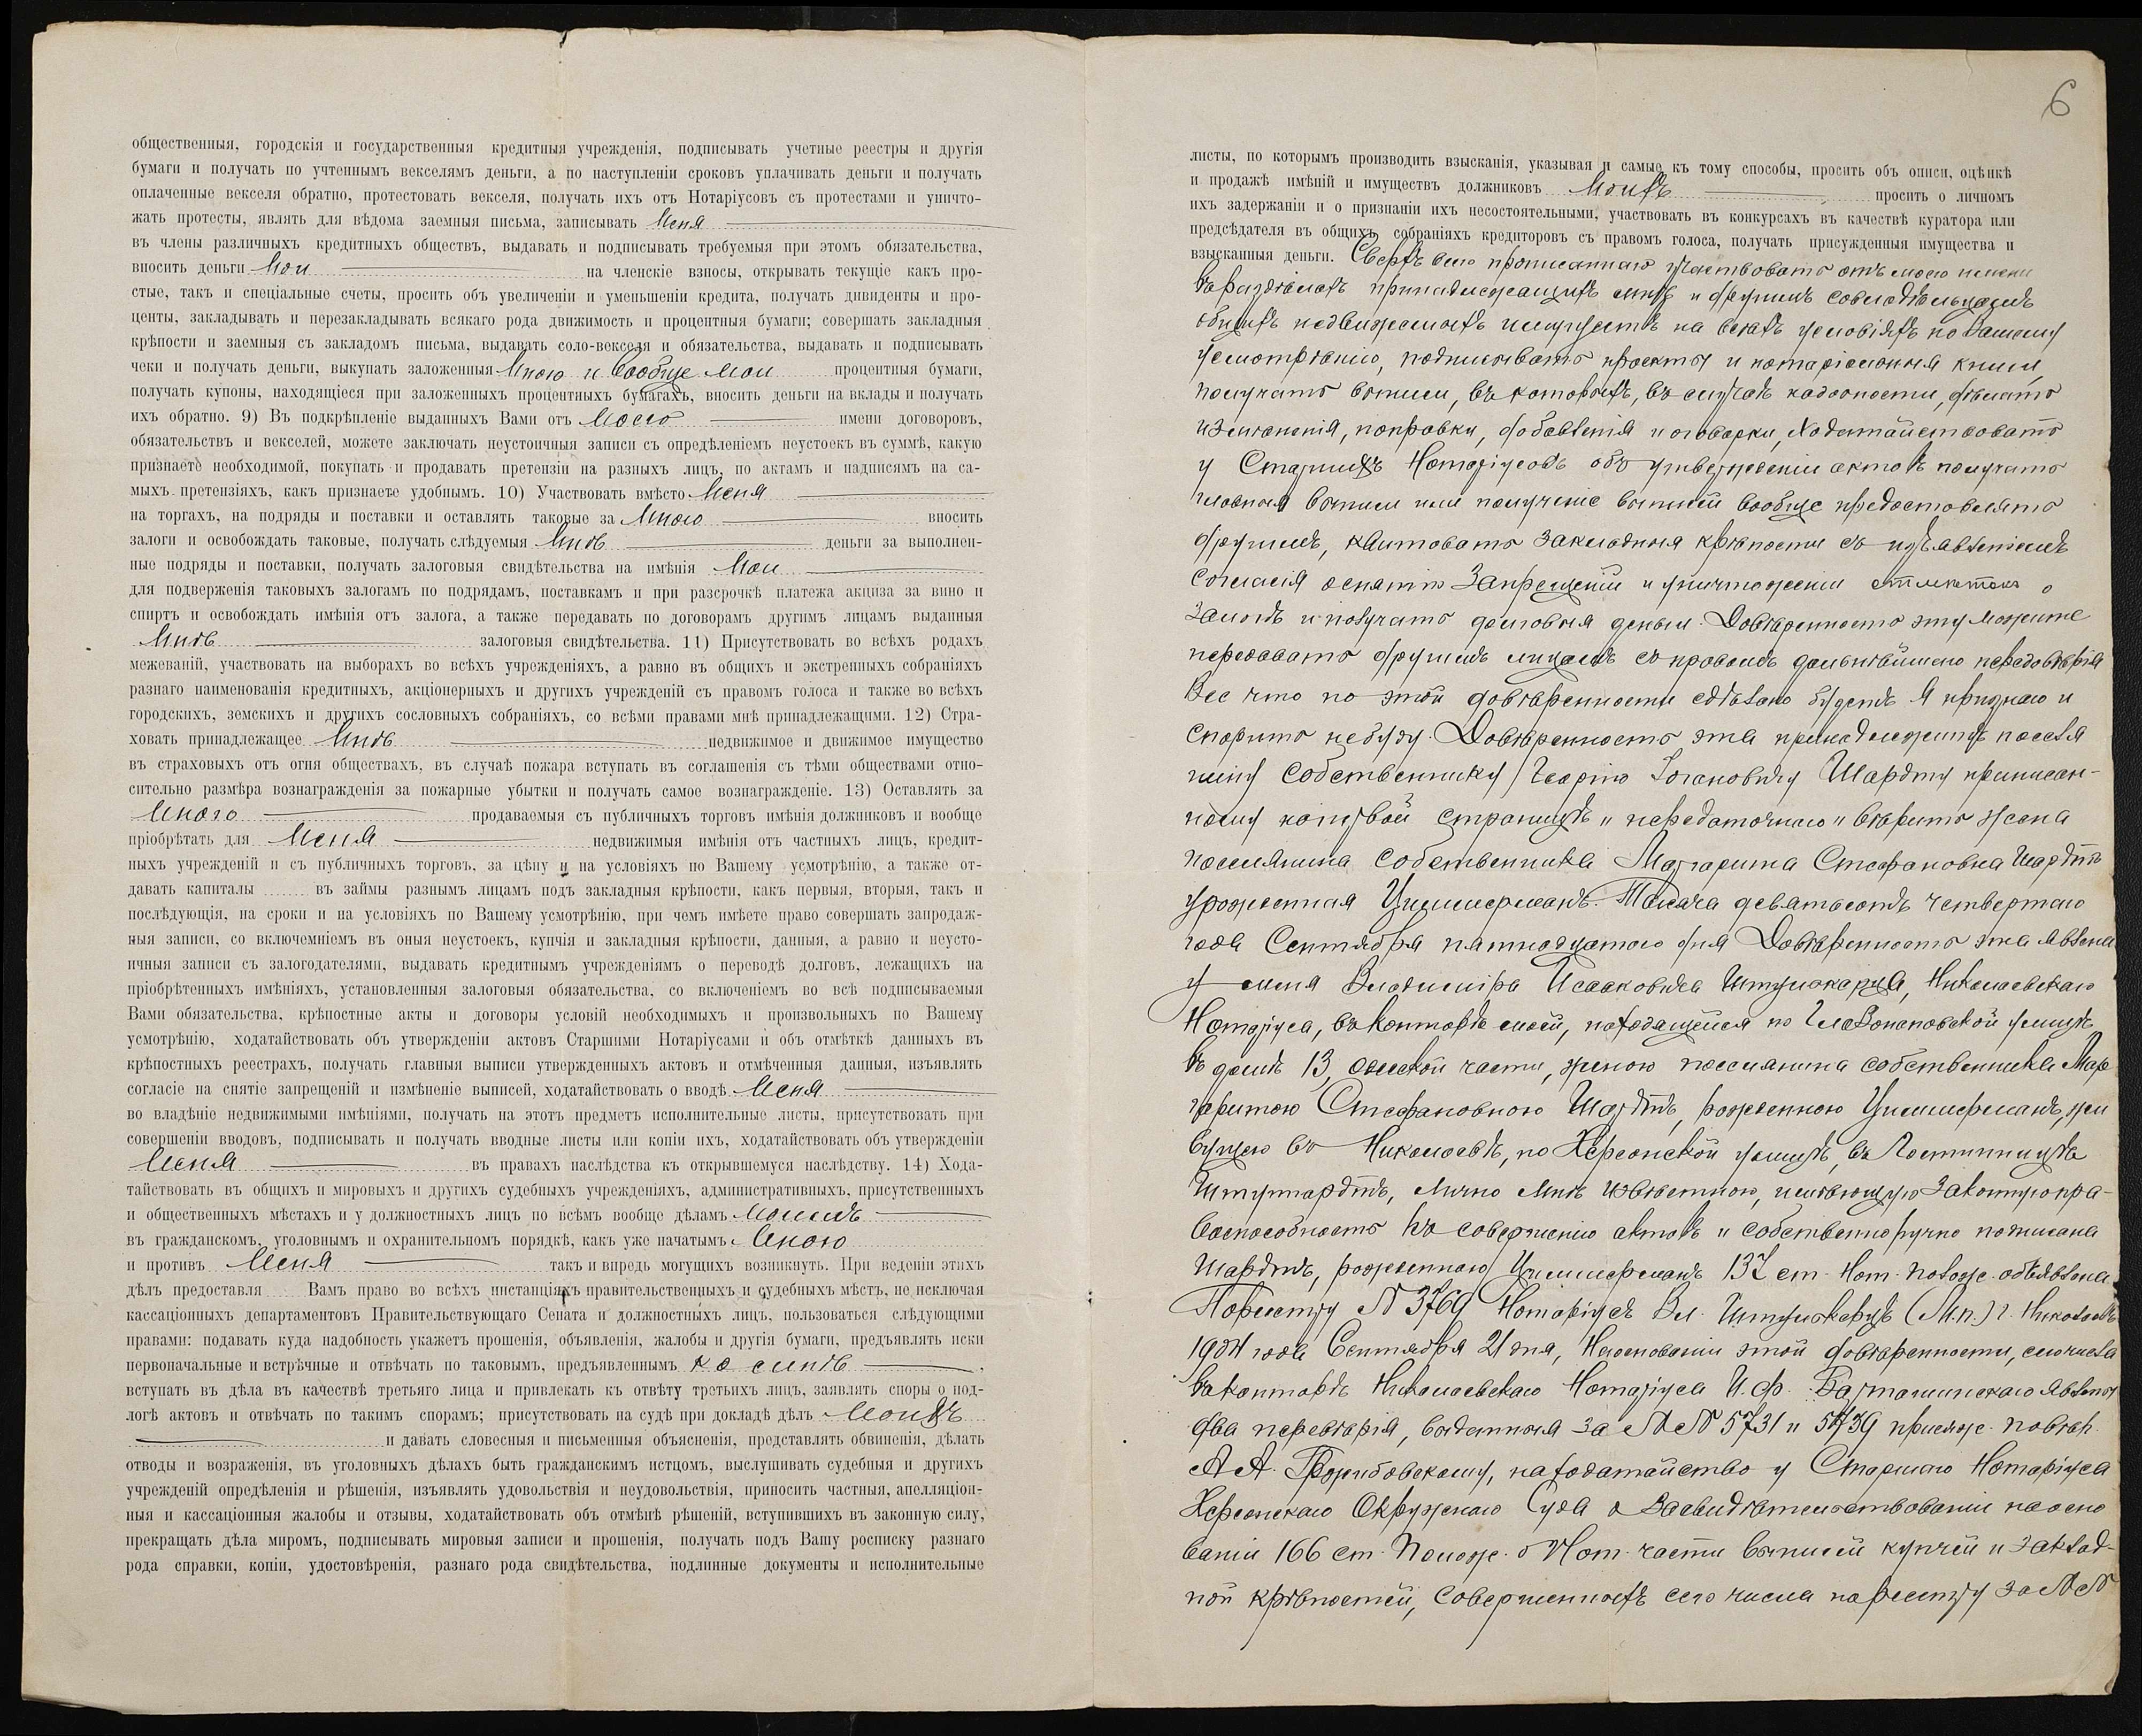 общественныя, городскія и государственныя кредитныя учрежденія, подписывать учетные реестры и другія
бумаги и получать по учтеннымъ векселямъ деньги, а по наступленіи сроковъ уплачивать деньги и получать
оплаченные векселя обратно, протестовать векселя, получать ихъ отъ Нотаріусовъ съ протестами и уничто-
жать протесты, являть для вѣдома заемныя письма, записывать меня
въ члены различныхъ кредитныхъ обществъ, выдавать и подписывать требуемыя при этомъ обязательства,
вносить деньги мои на членскіе взносы, открывать текущіе какъ про-
стые, такъ и спеціальные счеты, просить объ увеличеніи и уменьшеніи кредита, получать дивиденты и про-
центы, закладывать и перезакладывать всякаго рода движимость и процентныя бумаги; совершать закладныя
крѣпости и заемныя съ закладомъ письма, выдавать соло-векселя и обязательства, выдавать и подписывать
чеки и получать деньги, выкупать заложенныя мною и вообще мои процентныя бумаги,
получать купоны, находящіеся при заложенныхъ процентныхъ бумагахъ, вносить деньги на вклады и получать
ихъ обратно. 9) Въ подкрѣпленіе выданныхъ Вами отъ моего имени договоровъ,
обязательствъ и векселей, можете заключать неустоичныя записи съ опредѣленіемъ неустоекъ въ суммѣ, какую
признаете необходимой, покупать и продавать претензіи на разныхъ лицъ, по актамъ и надписямъ на са-
мыхъ претензіяхъ, какъ признаете удобнымъ. 10) Участвовать вмѣсто меня
на торгахъ, на подряды и поставки и оставлять таковые за мною вносить
залоги и освобождать таковые, получать слѣдуемыя мнѣ деньги за выполнен-
ные подряды и поставки, получать залоговыя свидѣтельства на имѣнія мои
для подверженія таковыхъ залогамъ по подрядамъ, поставкамъ и при разсрочкѣ платежа акциза за вино и
спиртъ и освобождать имѣнія отъ залога, а также передавать по договорамъ другимъ лицамъ выданныя
мнѣ залоговыя свидѣтельства. 11) Присутствовать во всѣхъ родахъ
межеваній, участвовать на выборахъ во всѣхъ учрежденіяхъ, а равно въ общихъ и экстренныхъ собраніяхъ
разнаго наименованія кредитныхъ, акціонерныхъ и другихъ учрежденій съ правомъ голоса и также во всѣхъ
городскихъ, земскихъ и другихъ сословныхъ собраніяхъ, со всѣми правами мнѣ принадлежащими. 12) Стра-
ховать принадлежащее мнѣ недвижимое и движимое имущество
въ страховыхъ отъ огня обществахъ, въ случаѣ пожара вступать въ соглашенія съ тѣми обществами отно-
сительно размѣра вознагражденія за пожарные убытки и получать самое вознагражденіе. 13) Оставлять за
мною продаваемыя съ публичныхъ торговъ имѣнія должниковъ и вообще
пріобрѣтать для меня недвижимыя имѣнія отъ частныхъ лицъ, кредит-
ныхъ учрежденій и съ публичныхъ торговъ, за цѣну и на условіяхъ по Вашему усмотрѣнію, а также от-
давать капиталы въ займы разнымъ лицамъ подъ закладныя крѣпости, какъ первыя, вторыя, такъ и
послѣдующія, на сроки и на условіяхъ по Вашему усмотрѣнію, при чемъ имѣете право совершать запродаж-
ныя записи, со включемніемъ въ оныя неустоекъ, купчія и закладныя крѣпости, данныя, а равно и неусто-
ичныя записи съ залогодателями, выдавать кредитнымъ учрежденіямъ о переводѣ долговъ, лежащихъ на
пріобрѣтенныхъ имѣніяхъ, установленныя залоговыя обязательства, со включеніемъ во всѣ подписываемыя
Вами обязательства, крѣпостные акты и договоры условій необходимыхъ и произвольныхъ по Вашему
усмотрѣнію, ходатайствовать объ утвержденіи актовъ Старшими Нотаріусами и объ отмѣткѣ данныхъ въ
крѣпостныхъ реестрахъ, получать главныя выписи утвержденныхъ актовъ и отмѣченныя данныя, изъявлять
согласіе на снятіе запрещеній и измѣненіе выписей, ходатайствовать о вводѣ меня
во владѣніе недвижимыми имѣніями, получать на этотъ предметъ исполнительные листы, присутствовать при
совершеніи вводовъ, подписывать и получать вводные листы или копіи ихъ, ходатайствовать объ утвержденіи
меня въ правахъ наслѣдства къ открывшемуся наслѣдству. 14) Хода-
тайствовать въ общихъ и мировыхъ и другихъ судебныхъ учрежденіяхъ, административныхъ, присутственныхъ
и общественныхъ мѣстахъ и у должностныхъ лицъ по всѣмъ вообще дѣламъ моимъ
въ гражданскомъ, уголовнымъ и охранительномъ порядкѣ, какъ уже начатымъ мною
и противъ меня такъ и впредь могущихъ возникнуть. При веденіи этихъ
дѣлъ предоставля Вамъ право во всѣхъ инстанціяхъ правительственныхъ и судебныхъ мѣстъ, не исключая
кассаціонныхъ департаментовъ Правительствующаго Сената и должностныхъ лицъ, пользоваться слѣдующими
правами: подавать куда надобность укажетъ прошенія, объявленія, жалобы и другія бумаги, предъявлять иски
первоначальные и встрѣчные и отвѣчать по таковымъ, предъявленнымъ ко мнѣ,
вступать въ дѣла въ качествѣ третьяго лица и привлекать къ отвѣту третьихъ лицъ, заявлять споры о под-
логѣ актовъ и отвѣчать по такимъ спорамъ; присутствовать на судѣ при докладѣ дѣлъ моихъ
и давать словесныя и письменныя объясненія, представлять обвиненія, дѣлать
отводы и возраженія, въ уголовныхъ дѣлахъ быть гражданскимъ истцомъ, выслушивать судебныя и другихъ
учрежденій опредѣленія и рѣшенія, изъявлять удовольствія и неудовольствія, приносить частныя, апелляціон-
ныя и кассаціонныя жалобы и отзывы, ходатайствовать объ отмѣнѣ рѣшеній, вступившихъ въ законную силу,
прекращать дѣла миромъ, подписывать мировыя записи и прошенія, получать подъ Вашу росписку разнаго
рода справки, копіи, удостовѣренія, разнаго рода свидѣтельства, подлинные документы и исполнительные
6
листы, по которымъ производить взысканія, указывая и самые къ тому способы, просить объ описи, оцѣнкѣ
и продажѣ имѣній и имуществъ должниковъ моихъ просить о личномъ
ихъ задержаніи и о признаніи ихъ несостоятельными, участвовать въ конкурсахъ въ качествѣ куратора или
предсѣдателя въ общихъ собраніяхъ кредиторовъ съ правомъ голоса, получать присужденныя имущества и
взысканныя деньги. Сверхъ всего прописаннаго участвовать отъ моего имени
въ раздѣлахъ принадлежащихъ мнѣ и другимъ совладѣльцамъ
общихъ недвижимыхъ имуществъ на всехъ условіяхъ по Вашему
усмотрѣнію, подписывать проекты и нотаріальныя книги,
получать выписи, въ которыхъ, въ случаѣ надобности, дѣлать
измѣненія, поправки, добавленія и оговорки, ходатайствовать
у Старшихъ Нотаріусовъ объ утвержденіи актовъ получать
главныя выписи или полученіе выписей вообще предоставлять
другимъ, квитовать закладныя крѣпости съ изъявленіемъ
согласія о снятіи запрещеній и уничтоженіи отмѣтокъ о
залогѣ и получать долговыя деньги. Довѣренность эту можете
передавать другимъ лицамъ съ правомъ дальнѣйшаго передовѣрія
Все что по этой довѣренности сдѣлано будетъ я признаю и
спорить не буду. Довѣренность эта принадлежитъ поселя
нину собственнику Георгію Іогановичу Шардту приписан-
ному на первой страницѣ „передаточнаго“ вѣрить жена
поселянина собственника Маргарита Стефановна Шардтъ
урожденная Циммерманъ. Тысяча девятьсотъ четвертаго
года Сентября пятнадцатаго дня Довѣренность эта явлена
у меня Владиміра Исааковича Штулькерца, Николаевскаго
Нотаріуса, въ конторѣ моей, находящейся по Глазенаповской улицѣ
въ домѣ 13, Одесской части, женою поселянина собственника Мар
гаритою Стефановною Шардтъ, рожденною Циммерманъ, жи
вущею въ Николаевѣ, по Херсонской улицѣ, въ Гостинницѣ
Штутгардтъ, лично мнѣ извѣстною, имѣющую законную пра-
воспособность къ совершенію актовъ и собственноручно подписана
Шардтъ, рожденною Циммерманъ 137 ст. Нот. Полож. объявлена
По реестру N 3769 Нотаріусъ Вл. Штулькерцъ (М.п.) г. Николаевъ
1904 года Сентября 21 дня, На основаніи этой довѣренности, сего числа
въ конторѣ Николаевскаго Нотаріуса И. Ф. явлены
два передовѣрія, выданныя за NN 5731 и 5739 присяж. повѣр.
А А. Гржибовскому, на ходатайство у Старшаго Нотаріуса
Херсонскаго Окружнаго Суда о засвидѣтельствованіи на осно
ваніи 166 ст. Полож. о Нот. части выписей купчей и заклад-
ной крѣпостей, совершенныхъ сего числа по реестру за NN